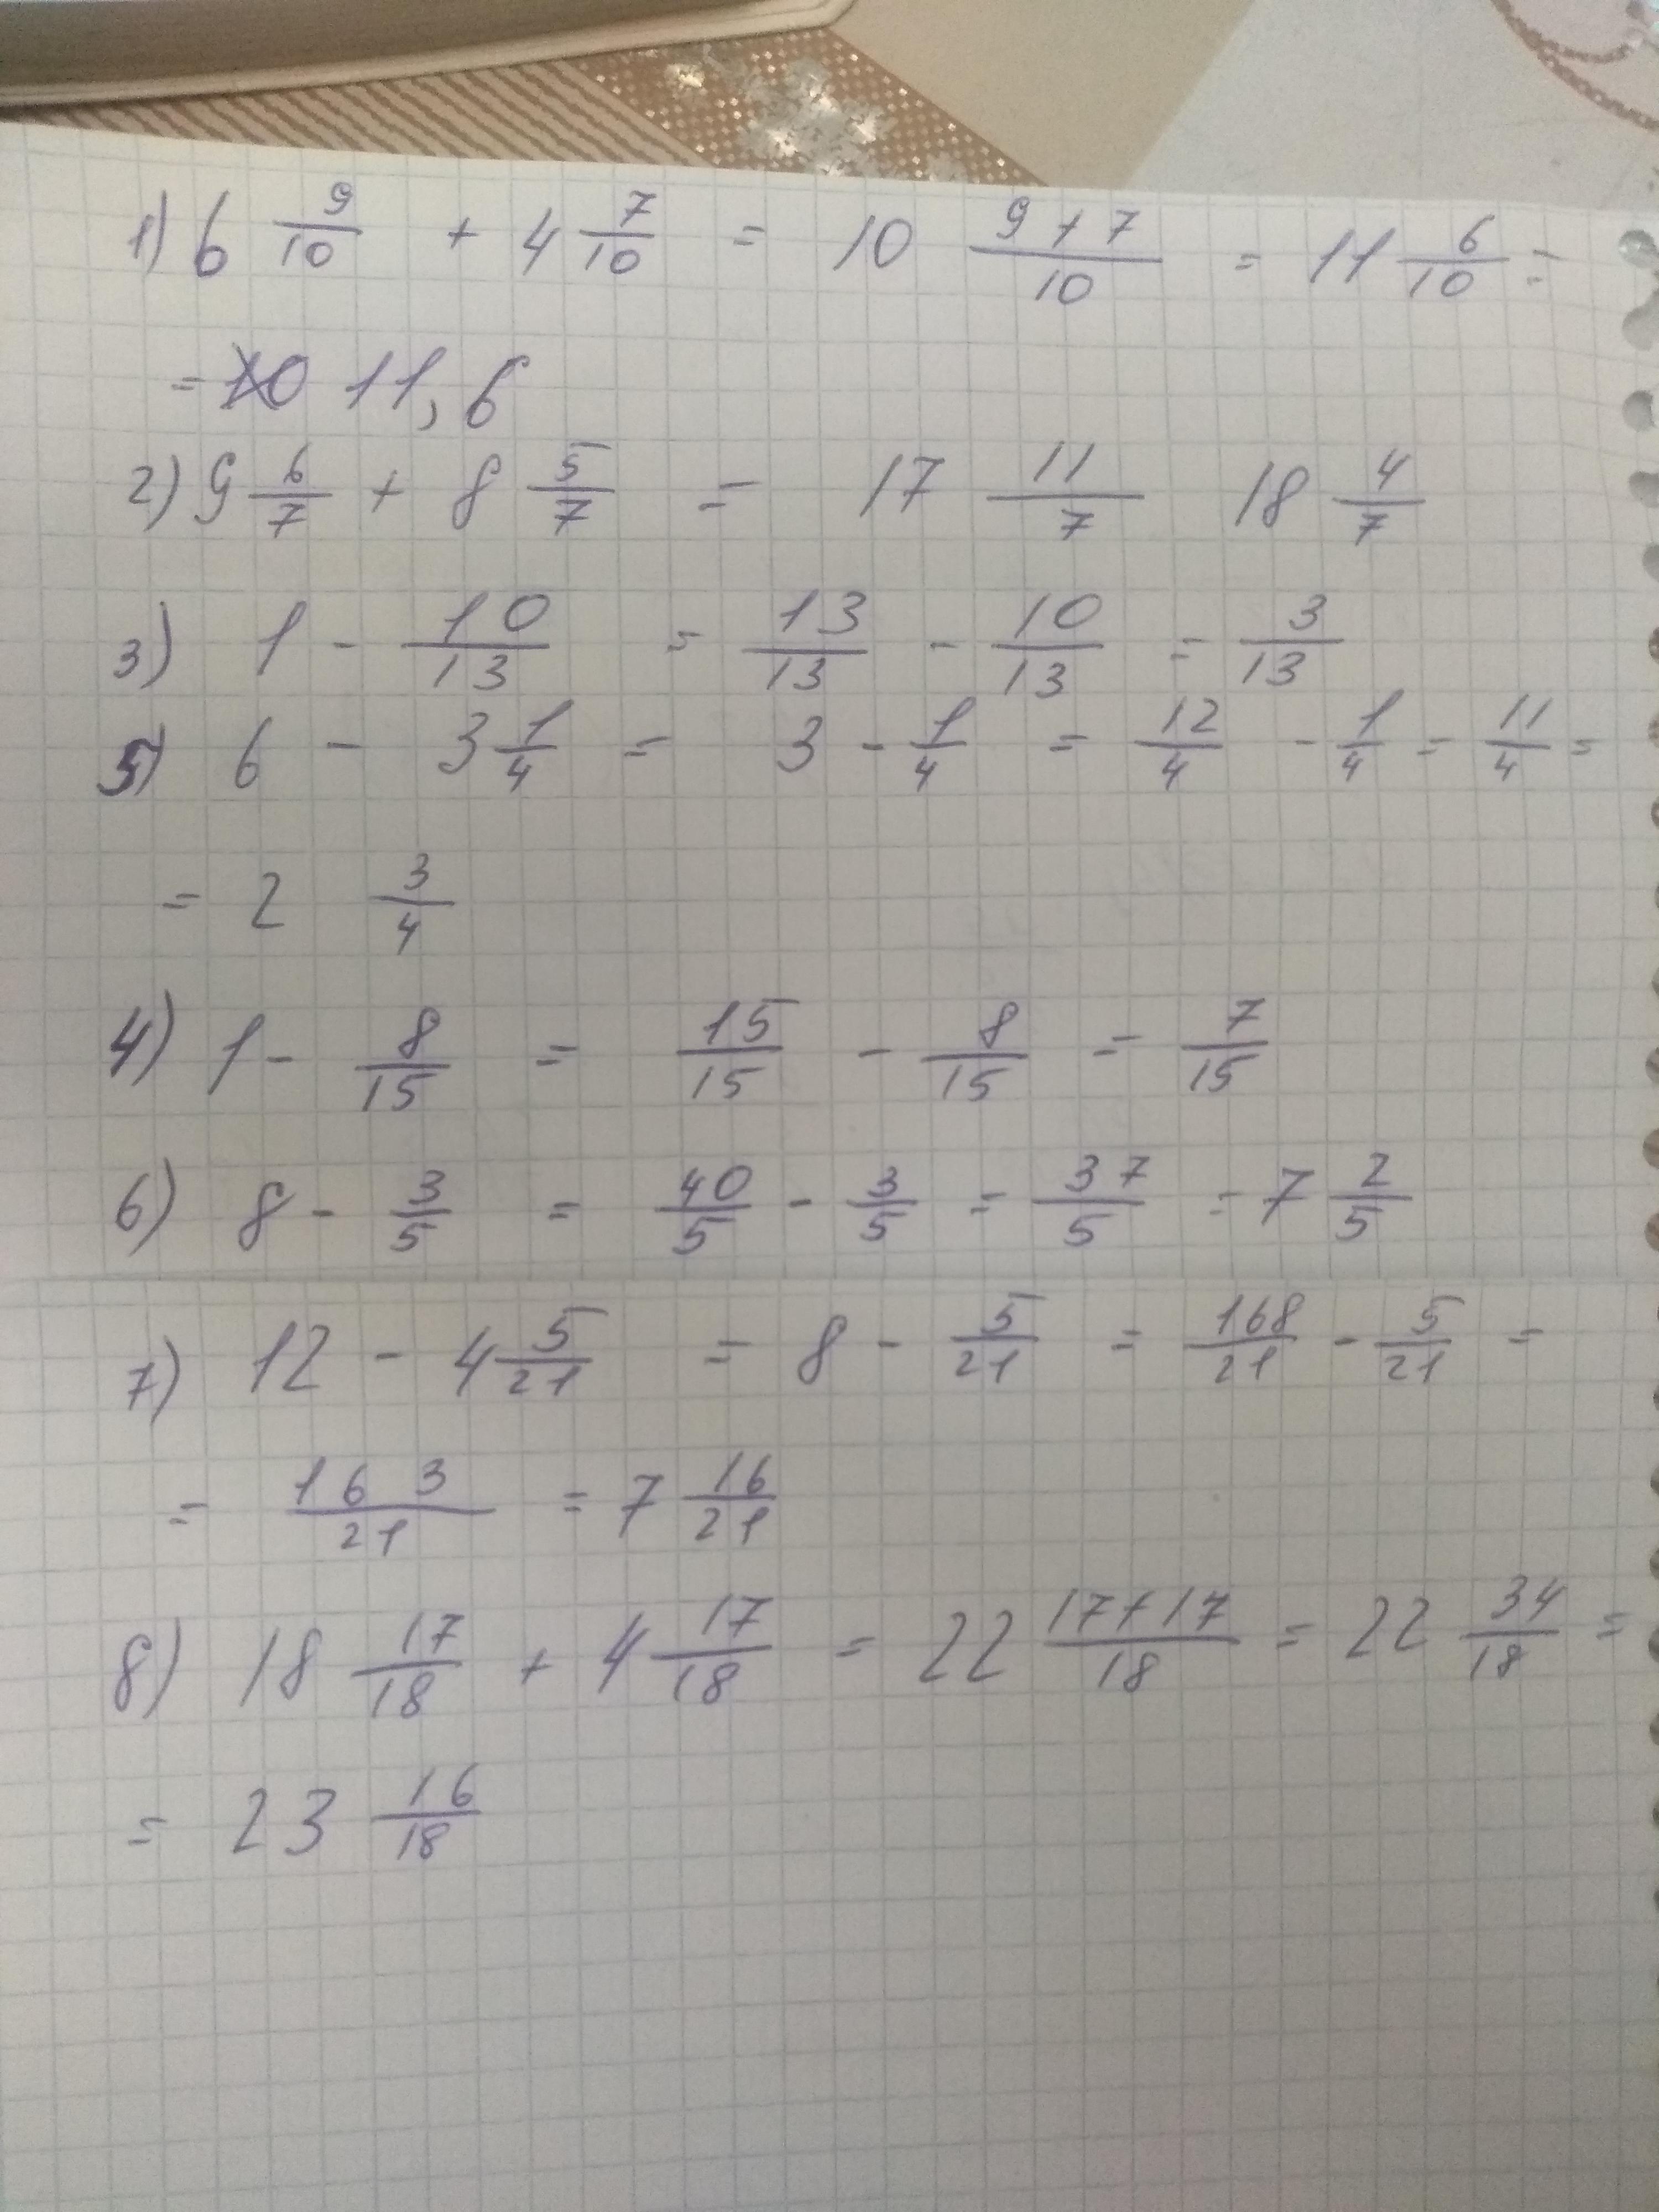 1) 6 9/10 + 4 7/10 = 10 (9+7)/10 = 11 6/10 =
= 10 11,6
2) 9 6/7 + 8 5/7 = 17 11/7 18 4/7
3) 1 - 10/13 = 13/13 - 10/13 = 3/13
5) 6 - 3 1/4 = 3 - 1/4 = 12/4 - 1/4 = 11/4 =
= 2 3/4
4) 1 - 8/15 = 15/15 - 8/15 = 7/15
6) 8 - 3/5 = 40/5 - 3/5 = 37/5 = 7 2/5
7) 12 - 4 5/21 = 8 - 5/21 = 168/21 - 5/21 =
= 163/21 = 7 16/21
8) 18 17/18 + 4 17/18 = 22 (17+17)/18 = 22 34/18 =
= 23 16/18